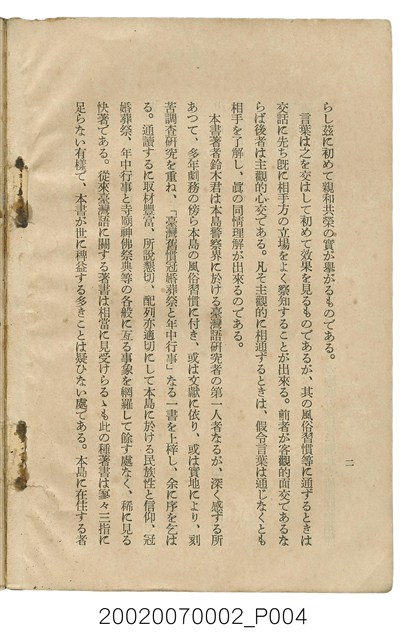 らし茲に初めて親和共榮の實が擧がるものである。
言葉は之を交はして初めて效果を見るものであるが、其の風俗習慣等に通ずるときは
交話に先ち既に相手方の立場をよく察知することが出來る。前者が客觀的面交であるな
らば後者は主觀的心交である。凡そ主觀的に相通ずるときは、假令言葉は通じなくとも
相手を了解し、眞の同情理解が出來るのである。
本書著者鈴木君は本島警察界に於ける臺灣語研究者の第一人者なるが、深く感ずる所
あつて、多年劇務の傍ら本島の風俗習慣に付き、或は文獻に依り、或は實地により、刻
苦調査研究を重ね、「臺灣舊慣冠婚葬祭と年中行事」なる一書を上梓し、余に序を乞は
る。通讀するに取材豐富、所說懇切、配列亦適切にして本島に於ける民族性と信仰、冠
婚葬祭、年中行事と寺廟神佛祭典等の各般に亙る事象を網羅して餘す處なく、稀に見る
快著である。從來臺灣語に關する著書は相當に見受けらるゝも此の種著書は寥々三指に
足らない有樣で、本書が世に裨益する多きことは疑ひない處である。本島に在住する者
二
20020070002_P004